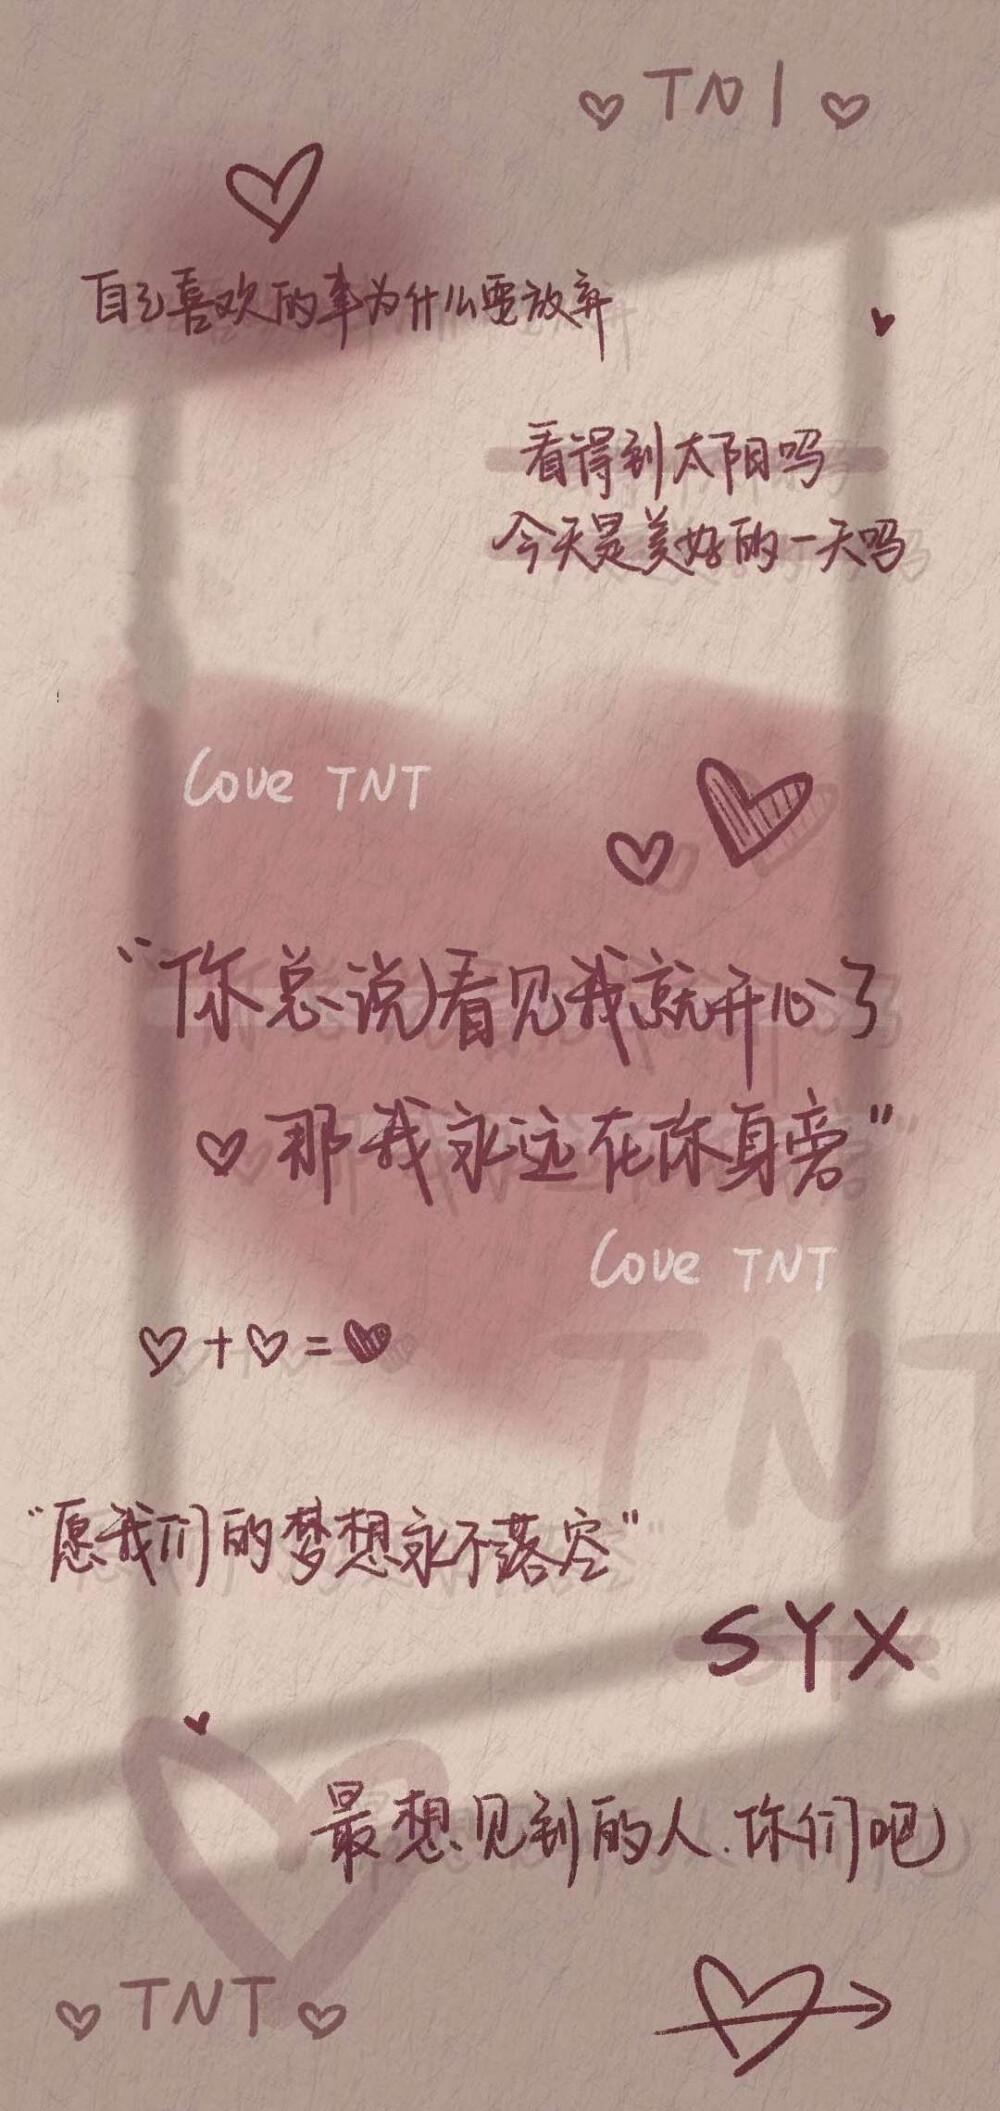 TN1
自己喜欢的事为什么要放弃
看得到太阳吗
今天是美好的一天吗
Love TNT
“你总说看见我就开心了
那我永远在你身旁”
Love TNT
+ =
TNT
“愿我们的梦想永不落空”
SYX
最想见到的人.你们吧
TNT